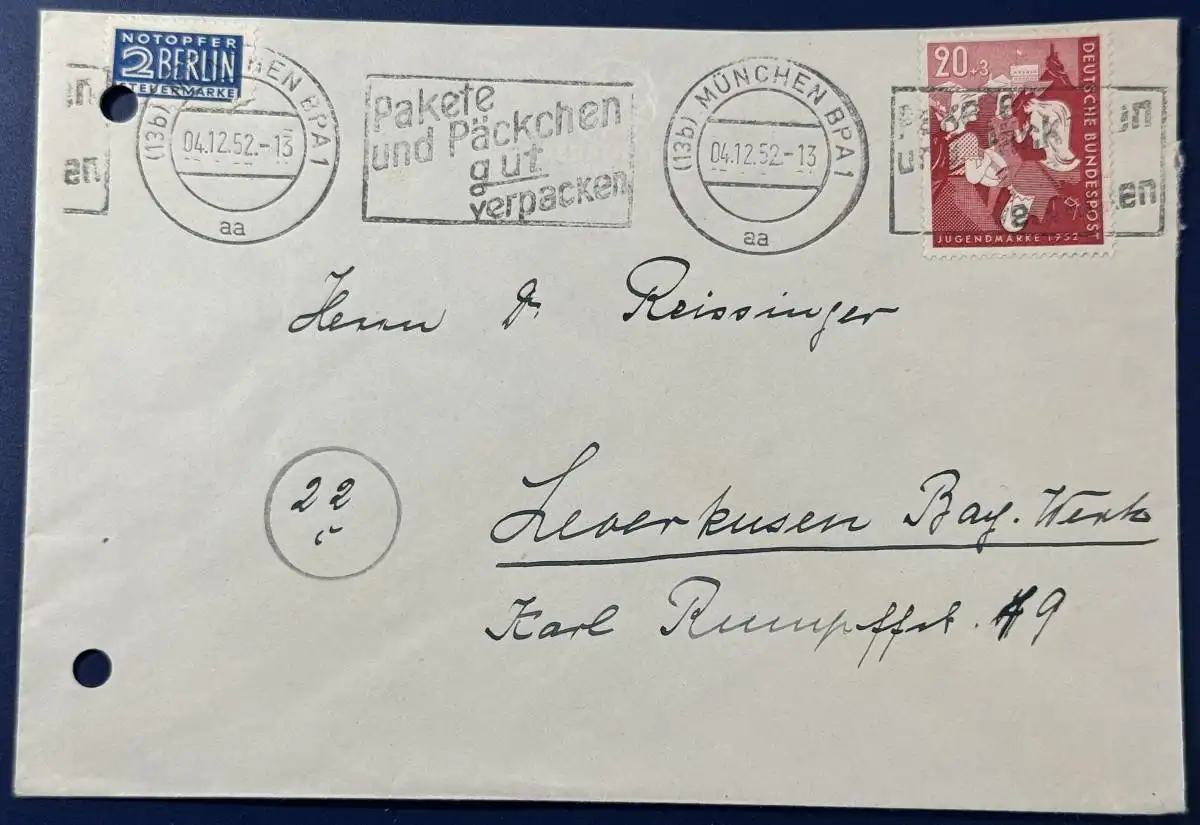 NOTOPFER
2 BERLIN
STEUERMARKE
(13b) MÜNCHEN BPA 1
04.12.52.-13
aa
Pakete
und Päckchen
gut
verpacken
(13b) MÜNCHEN BPA 1
04.12.52.-13
aa
20+3
DEUTSCHE BUNDESPOST
JUGENDMARKE 1952
Herrn Dr. Reissinger
22
c
Leverkusen Bay. Werk
Karl Rumpffst. 9